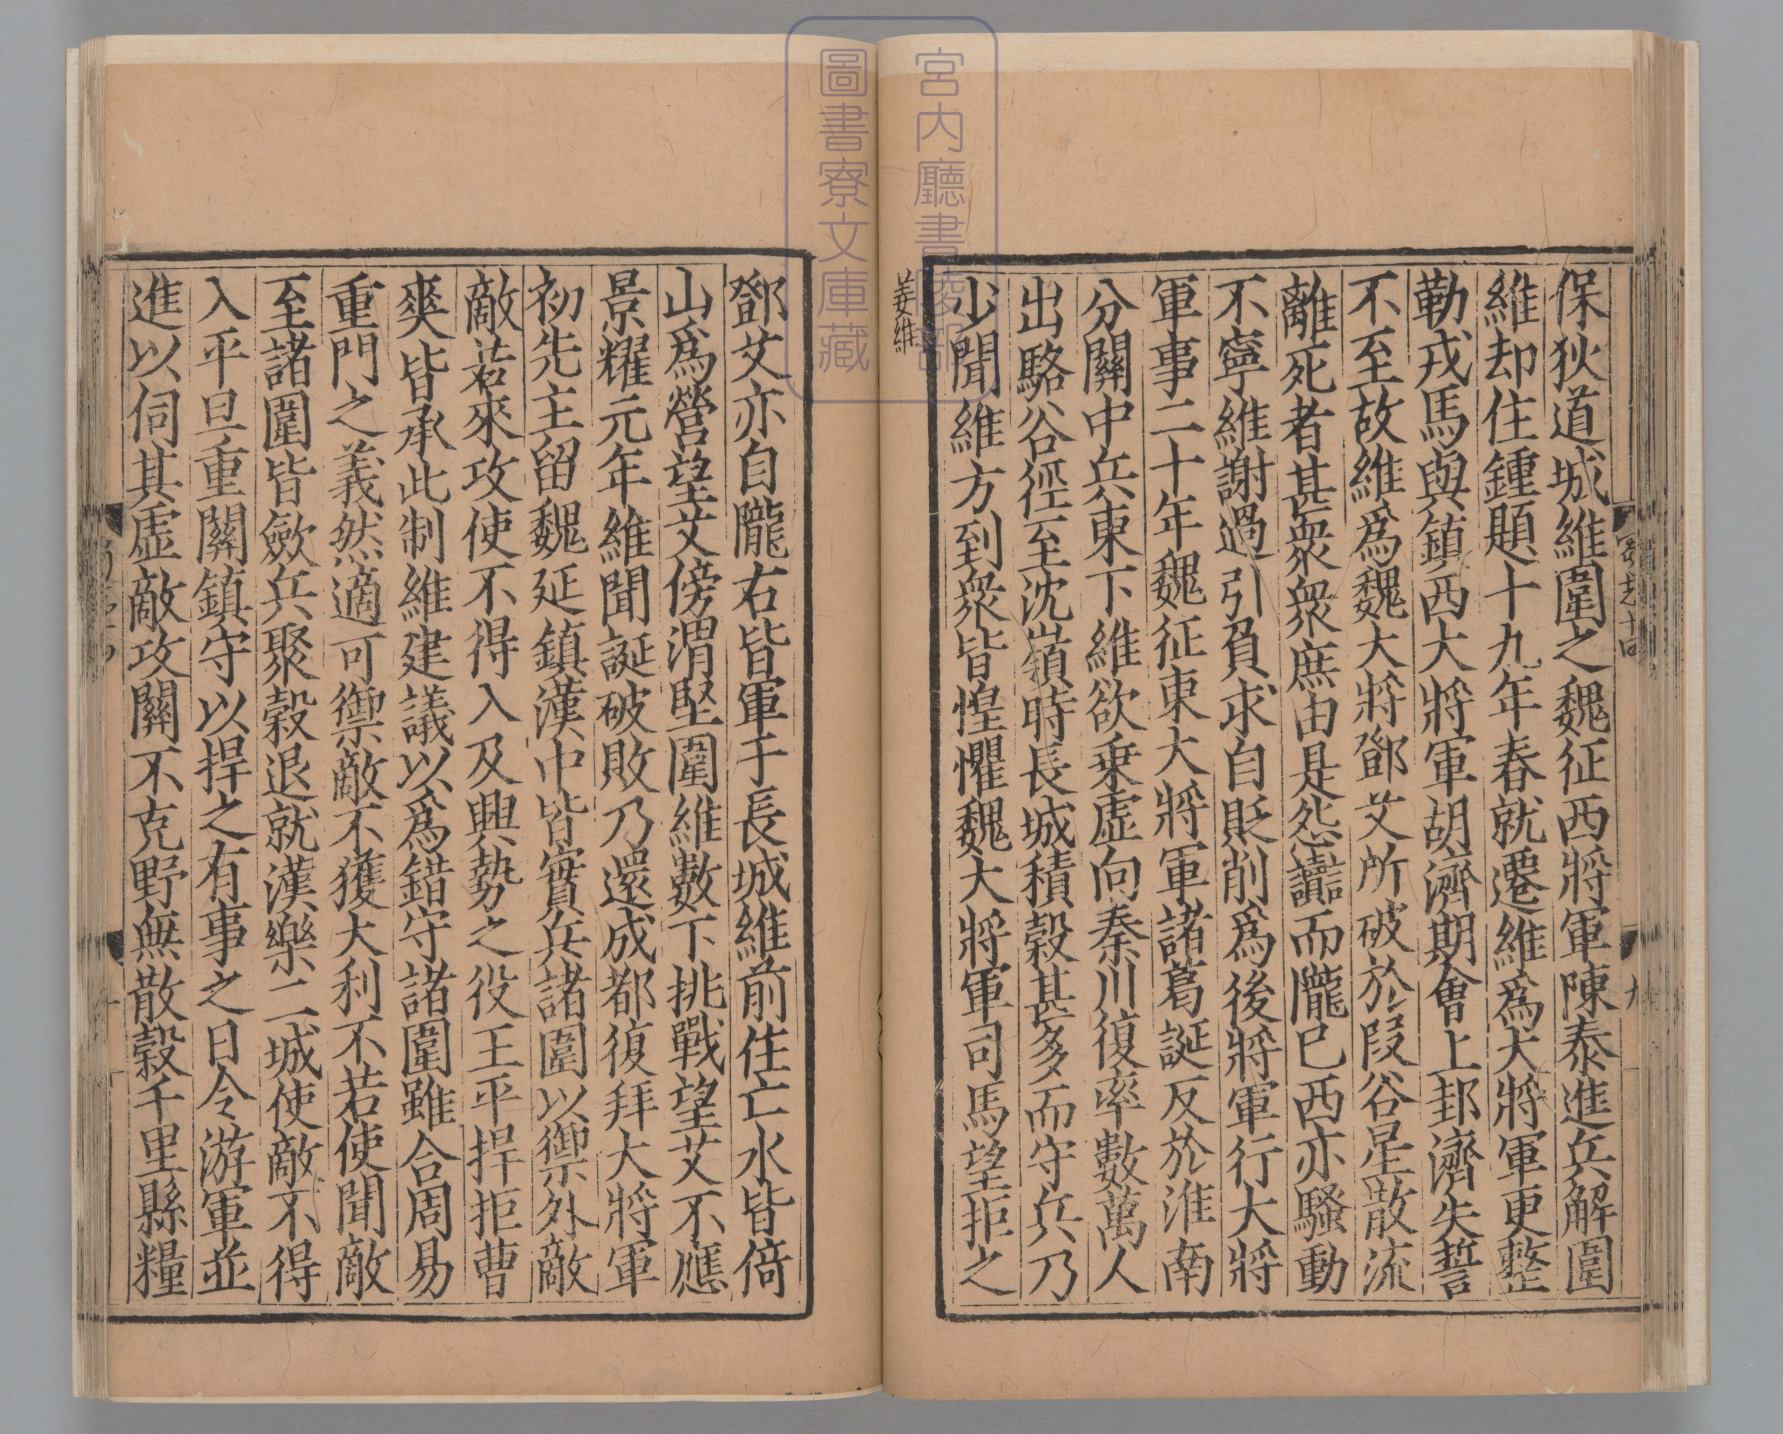 保狄道城維圍之魏征西將軍陳泰進兵解圍
維却住鍾題十九年春就遷維爲大將軍更整
勒戎馬與鎮西大將軍胡濟期會上邽濟失誓
不至故維爲魏大將鄧艾所破於段谷星散流
離死者甚衆衆庶由是怨讟而隴巳西亦騷動
不寧維謝過引負求自貶削爲後將軍行大將
軍事二十年魏征東大將軍諸葛誕反於淮南
分關中兵東下維欲乗虛向秦川復率數萬人
出駱谷徑至沈嶺時長城積穀甚多而守兵乃
少聞維方到衆皆惶懼魏大將軍司馬望拒之
姜維
鄧艾亦自隴右皆軍于長城維前住亡水皆倚
山爲營望艾傍渭堅圍維數下挑戰望艾不應
景耀元年維聞誕破敗乃還成都復拜大將軍
初先主留魏延鎮漢中皆實兵諸圍以禦外敵
敵若來攻使不得入及興勢之役王平捍拒曹
爽皆承此制維建議以爲錯守諸圍雖合周易
重門之義然適可禦敵不獲大利不若使聞敵
至諸圍皆斂兵聚穀退就漢樂二城使敵不得
入平旦重關鎮守以捍之有事之日令游軍並
進以伺其虛敵攻關不克野無散穀千里縣糧
宮内廳書陵部
圖書寮文庫藏